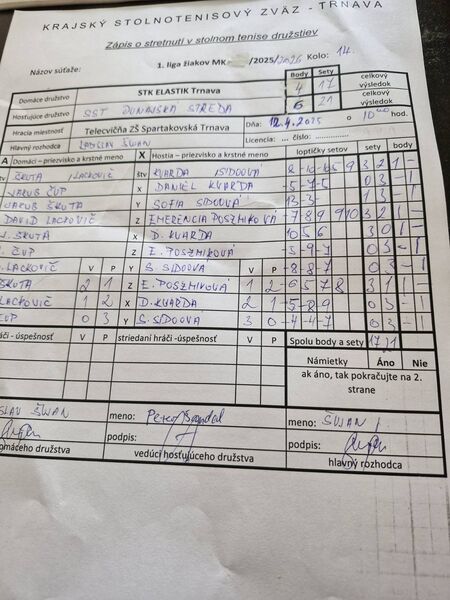 KRAJSKÝ STOLNOTENISOVÝ ZVÄZ - TRNAVA
Zápis o stretnutí v stolnom tenise družstiev
Názov súťaže: 1. liga žiakov MK /2025/2026 Kolo: 14.
Body Sety
Domáce družstvo STK ELASTIK Trnava 4 17 celkový výsledok
Hosťujúce družstvo SST DUNAJSKÁ STREDA 6 21 celkový výsledok
Hracia miestnosť Telocvičňa ZŠ Spartakovská Trnava Dňa: 12.4.2025 o 10 00 hod.
Hlavný rozhodca LADISLAV ŠWAN Licencia ... číslo:
A Domáci – priezvisko a krstné meno X Hostia – priezvisko a krstné meno loptičky setov sety body
štv ŠKUTA /LACKOVIČ štv KVARDA /SIDOOVÁ 3 2 1 –
JAKUB ČUP X DANIEL KVARDA -5-7-5 0 3 – 1
JAKUB ŠKUTA Y SOFIA SIDOOVÁ 1 3 – 1
DAVID LACKOVIČ Z EMERENCIA POSZMIKOVÁ 3 2 1 –
J. ŠKUTA X D. KVARDA 10 5 6 3 0 1 –
. ČUP Z E. POSZMIKOVÁ -5-9-7 0 3 – 1
. LACKOVIČ V P Y S. SIDOOVÁ V P -8-8-7 0 3 – 1
ŠKUTA 2 1 Z E. POSZMIKOVÁ 1 2 -6 5 7 8 3 1 1 –
LACKOVIČ 1 2 X D. KVARDA 2 1 -5-8-9 0 3 – 1
ČUP 0 3 Y S. SIDOOVÁ 3 0 -4-4-7 0 3 – 1
hráči - úspešnosť V P striedaní hráči - úspešnosť V P Spolu body a sety
Námietky Áno Nie
ak áno, tak pokračujte na 2. strane
SLAV ŠWAN meno: meno: ŠWAN
podpis: podpis:
domáceho družstva vedúci hosťujúceho družstva hlavný rozhodca